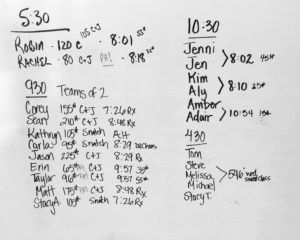 5:30
Robin - 120 C 105 C+J - 8:01 53#
Rachel - 80 C+J PR! - 8:18 35#
930 Teams of 2
Corey 155# C+J 7:26 Rx
Sean 210# C+J 8:48 Rx
Kathryn 105# Snatch A.H
Carla 95# Snatch 8:29
Jason 225# C+J 8:29 Rx
Erin 65# C+J 9:57 35#
Taylor 96# C+J 9:57 55#
Matt 175# C+J 8:48 Rx
Stacy A. 105# Snatch 7:26 Rx
10:30
Jenni
Jen > 8:02 45#
Kim
Aly > 8:10 25#
Amber
Adair > 10:54 15#
4:30
Tom
Steve
Melissa > 546
Michael
Stacy T.